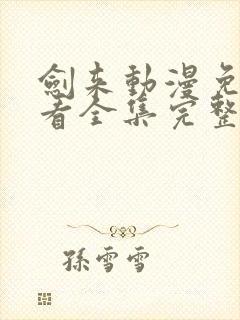 劍来動漫免
看全集完整
孫雪雪